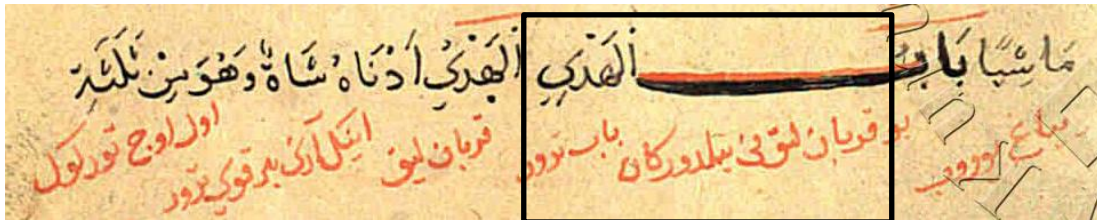 مَاشِيًا بَابُ الْهَدْيِ الْهَدْيُ اَدْنَاهُ شَاةٌ وَهُوَ مِنْ ثَلَثَةِ
بو قربان ليق نى بيلدوركان باب تورور قربان ليق اينكل آزى بر قوى تورور اول اوج تورلوك